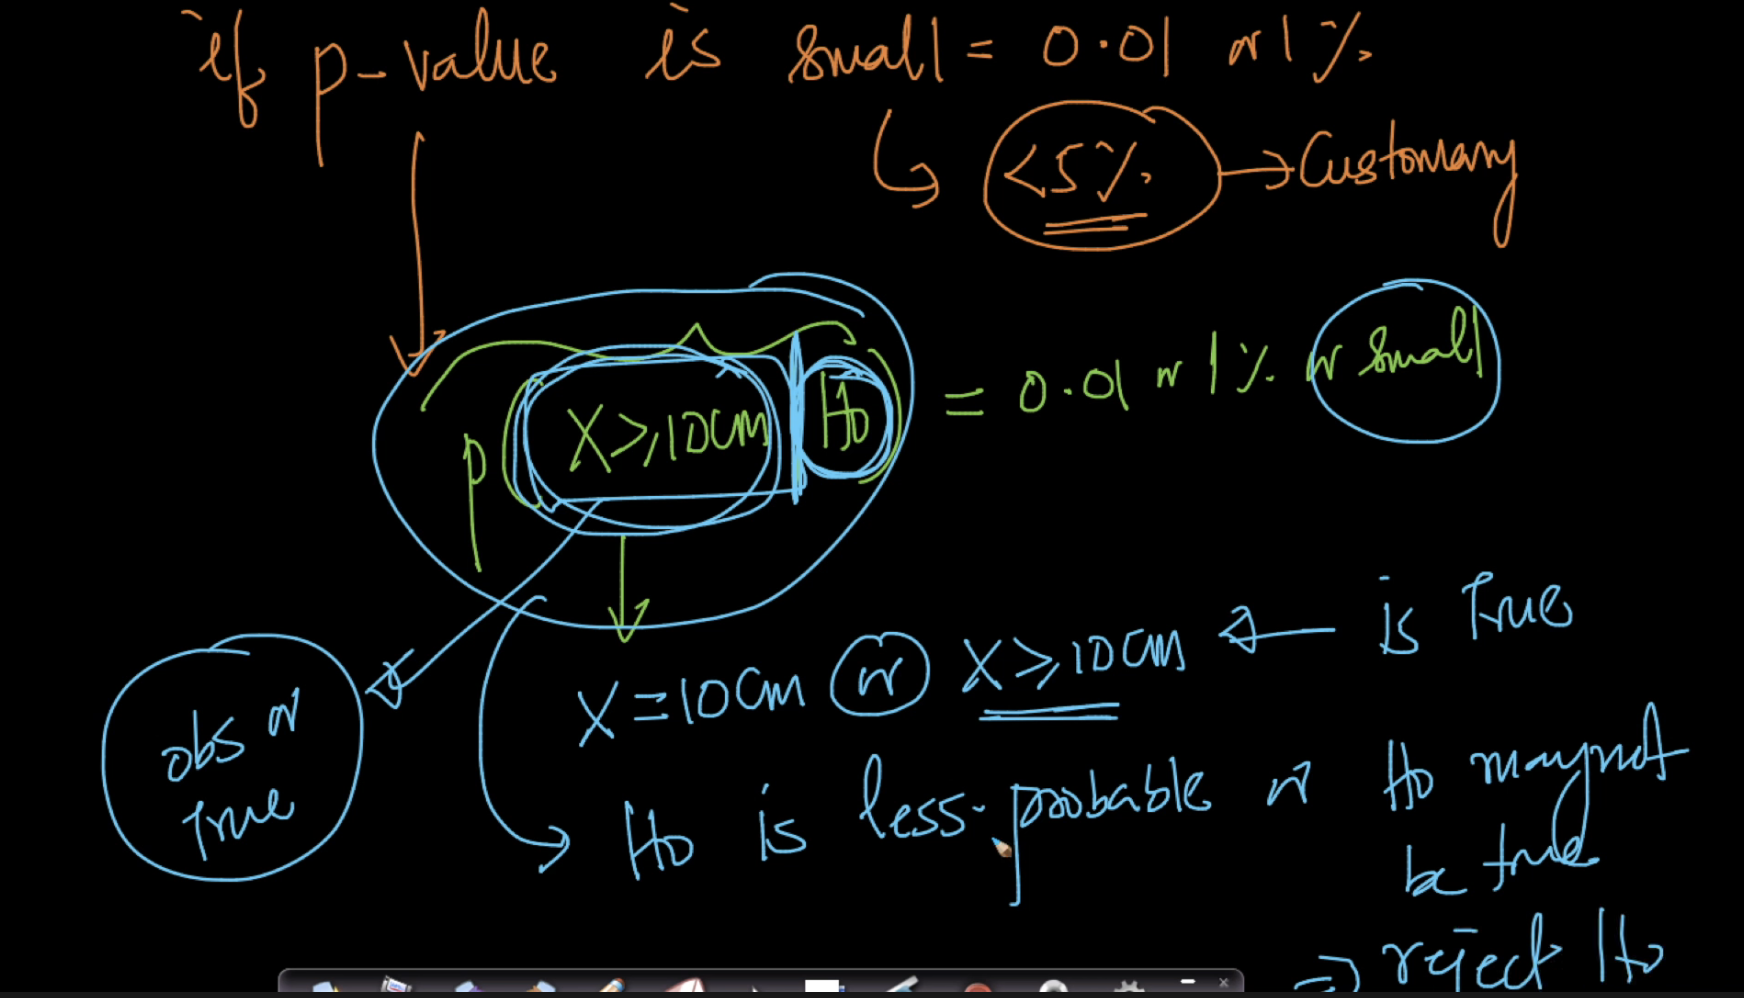 if p-value is small = 0.01 or 1%
<5% → Customary
p(X≥10cm | Ho) = 0.01 or 1% or small
X=10cm or X≥10cm ← is True
obs or
True
Ho is less probable or Ho may not
be true
⇒ reject Ho